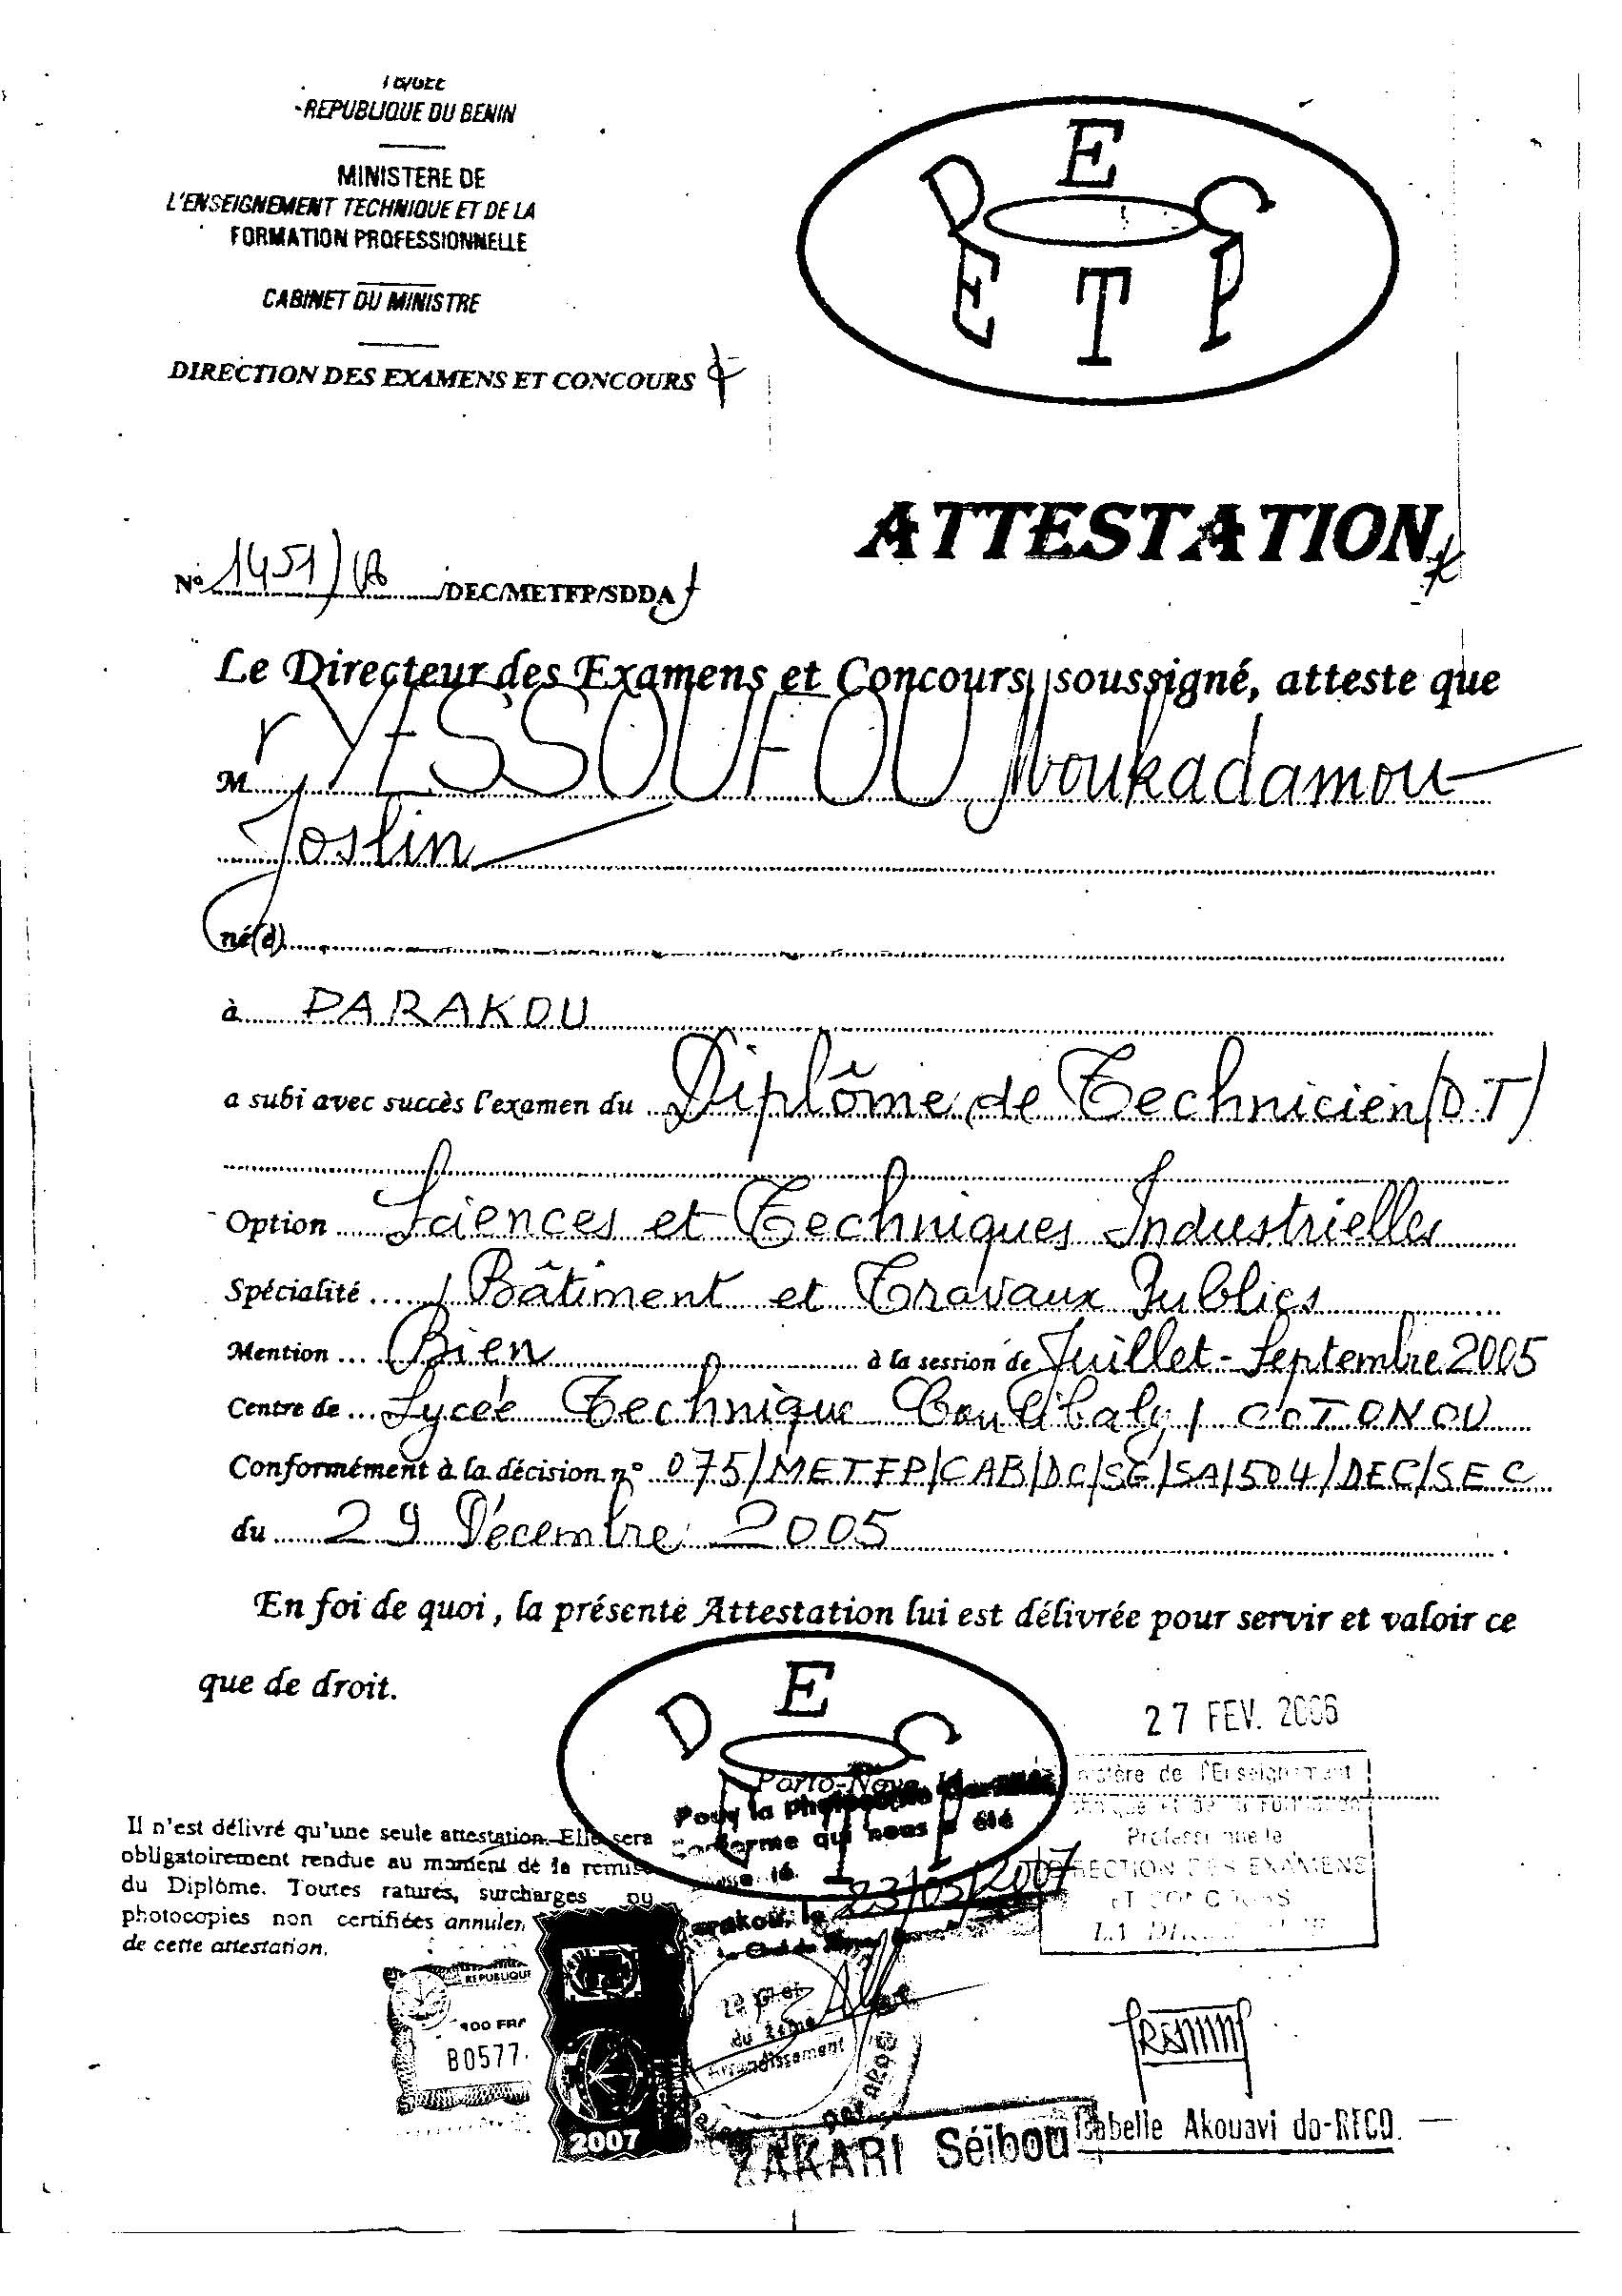 REPUBLIQUE DU BENIN
MINISTERE DE
L'ENSEIGNEMENT TECHNIQUE ET DE LA
FORMATION PROFESSIONNELLE
CABINET DU MINISTRE
DIRECTION DES EXAMENS ET CONCOURS
D E C
E T P
ATTESTATION
N° 1451/ /DEC/METFP/SDDA
Le Directeur des Examens et Concours, soussigné, atteste que
Mr YESSOUFOU Moukadamou
Joslin
né(e)
à PARAKOU
a subi avec succès l'examen du Diplôme de Technicien (D.T)
Option Sciences et Techniques Industrielles
Spécialité Bâtiment et Travaux Publics
Mention Bien à la session de Juillet-Septembre 2005
Centre de Lycée Technique Coulibaly / COTONOU
Conformément à la décision n° 075/METFP/CAB/DC/SG/SA/504/DEC/SEC
du 29 Décembre 2005
En foi de quoi, la présente Attestation lui est délivrée pour servir et valoir ce
que de droit.
D E C
27 FEV. 2006
Porto-Novo, le
Ministère de l'Enseignement
Professionnelle
DIRECTION DES EXAMENS
ET CONCOURS
Pour la photocopie
conforme qui nous a été
Parakou, le 23/05/2007
Il n'est délivré qu'une seule attestation. Elle sera
obligatoirement rendue au moment de la remise
du Diplôme. Toutes ratures, surcharges ou
photocopies non certifiées annulen
de cette attestation.
REPUBLIQUE
B0577
2007
Le Chef
du 2ème
Arrondissement
ZAKARI Séïbou
Isabelle Akouavi do-REGO.